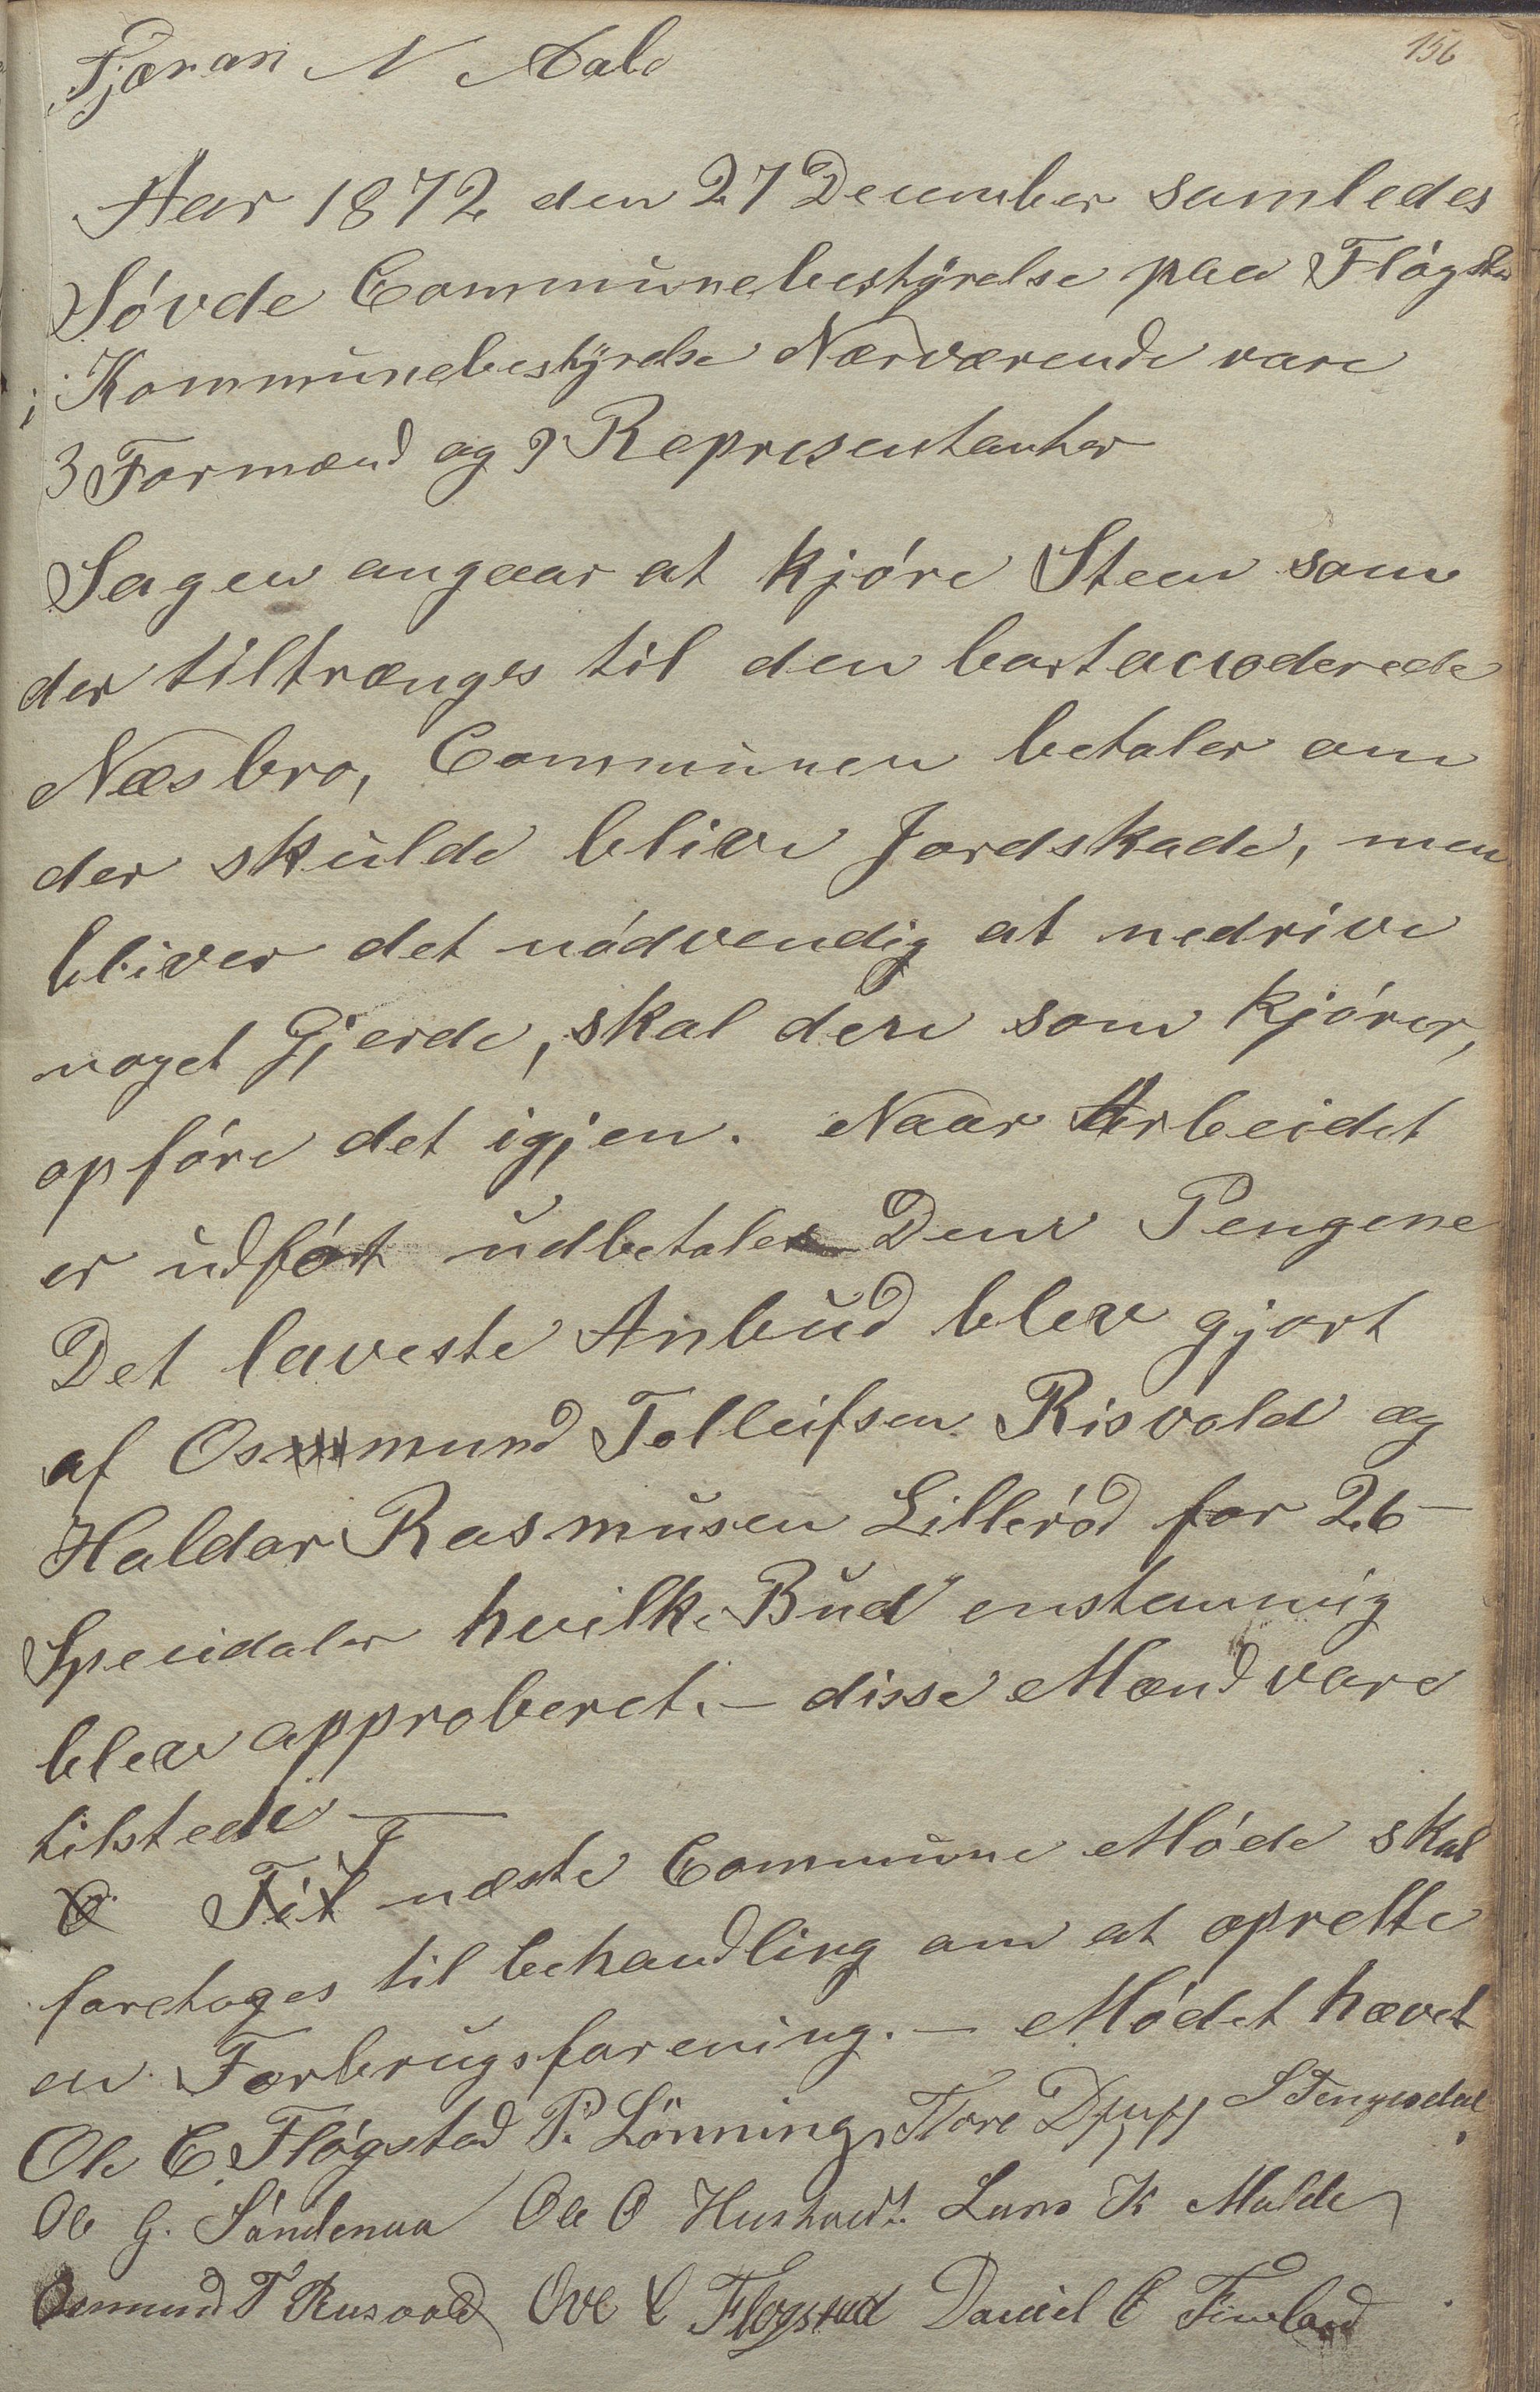 156
Fjæran N Aabø
Aar 1872 den 27 December samledes
Søvde Communebestÿrelse paa Fløgstad
i Kommunebestÿrelse Nærværende vare
3 Formænd og 9 Representanter
Sagen angaar at kjóre Steen som
der tiltrænges til den bortaccoderede
Næsbro, Communen betaler om
der skulde blive Jordskade, men
bliver det nódvendig at nedrive
noget Gjerde, skal den som kjórer,
opfóre det igjen. Naar Arbeidet
er udfórt udbetales Dem Pengene
Det laveste Anbud blev gjort
af Osmund Tolleifsen Risvold og
Haldor Rasmusen Lilleród for 26 –
Specidaler hvilke Bud enstemmig
blev approberet. – disse Mænd vare
tilstede —
I næste Commune Móde skal
foretages til behandling om at oprette
en Forbrugsforening. – Módet hævet
Ole C. Flógstad P. Lönning, Tore S Tengesdal
Ole G. Sándenaa Ole O Hustoedt. Lars K Malde
Osmund T Rusvold Ove C Flogstad Daniel C Finland